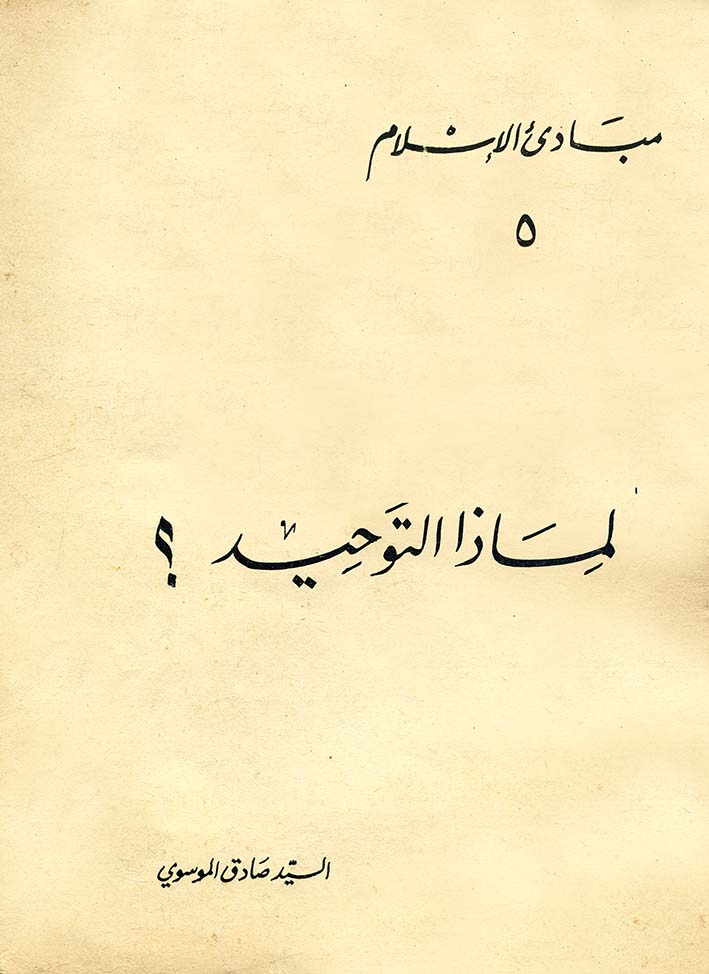 مبَادئ الإسْلام
٥
لِمَاذا التوَحِيد ؟
السيّد صَادق الموسوي